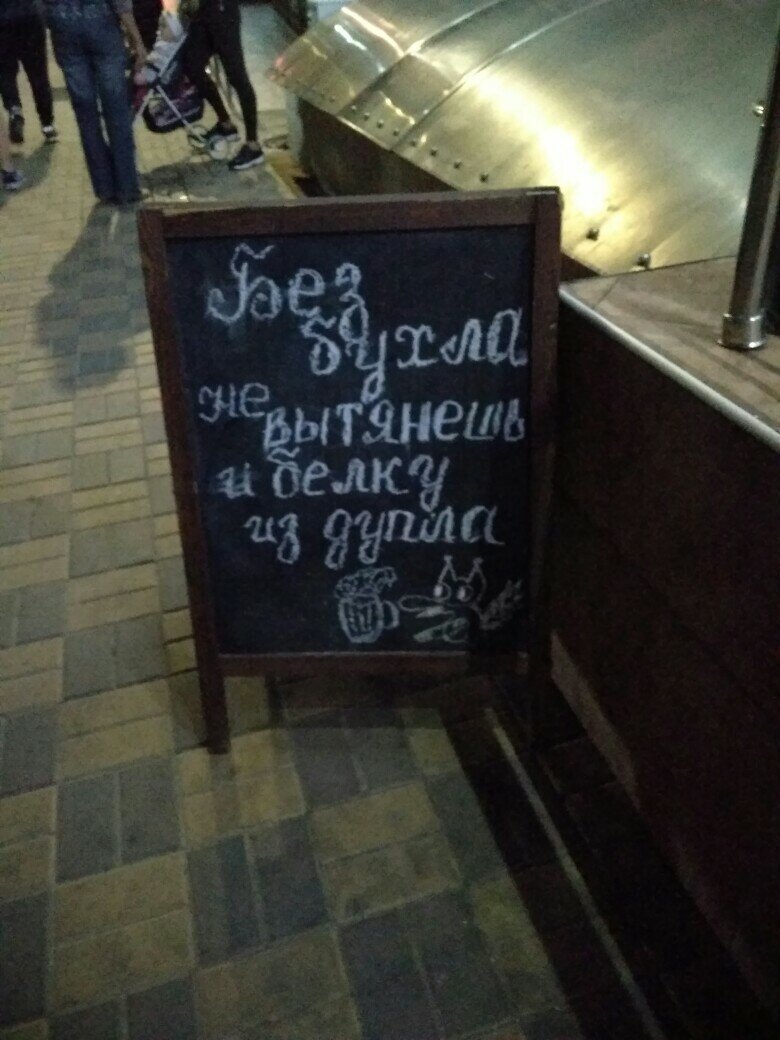 Без
бухла
не
вытянешь
и белку
из дупла